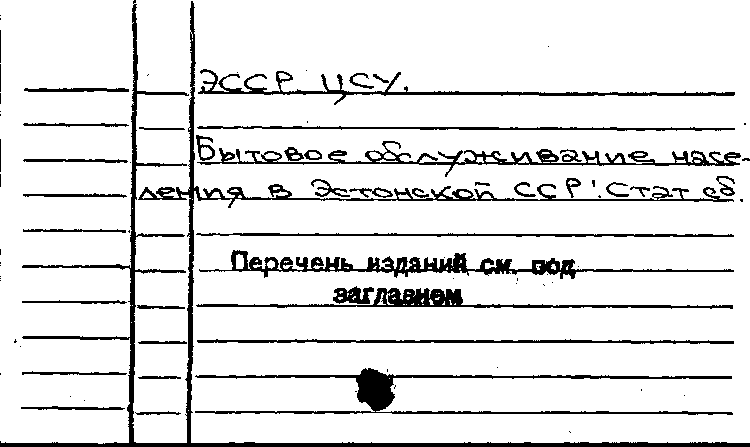 ЭССР. ЦСУ.
Бытовое обслуживание насе-
ления в Эстонской ССР: Стат сб.
Перечень изданий см. под
заглавием